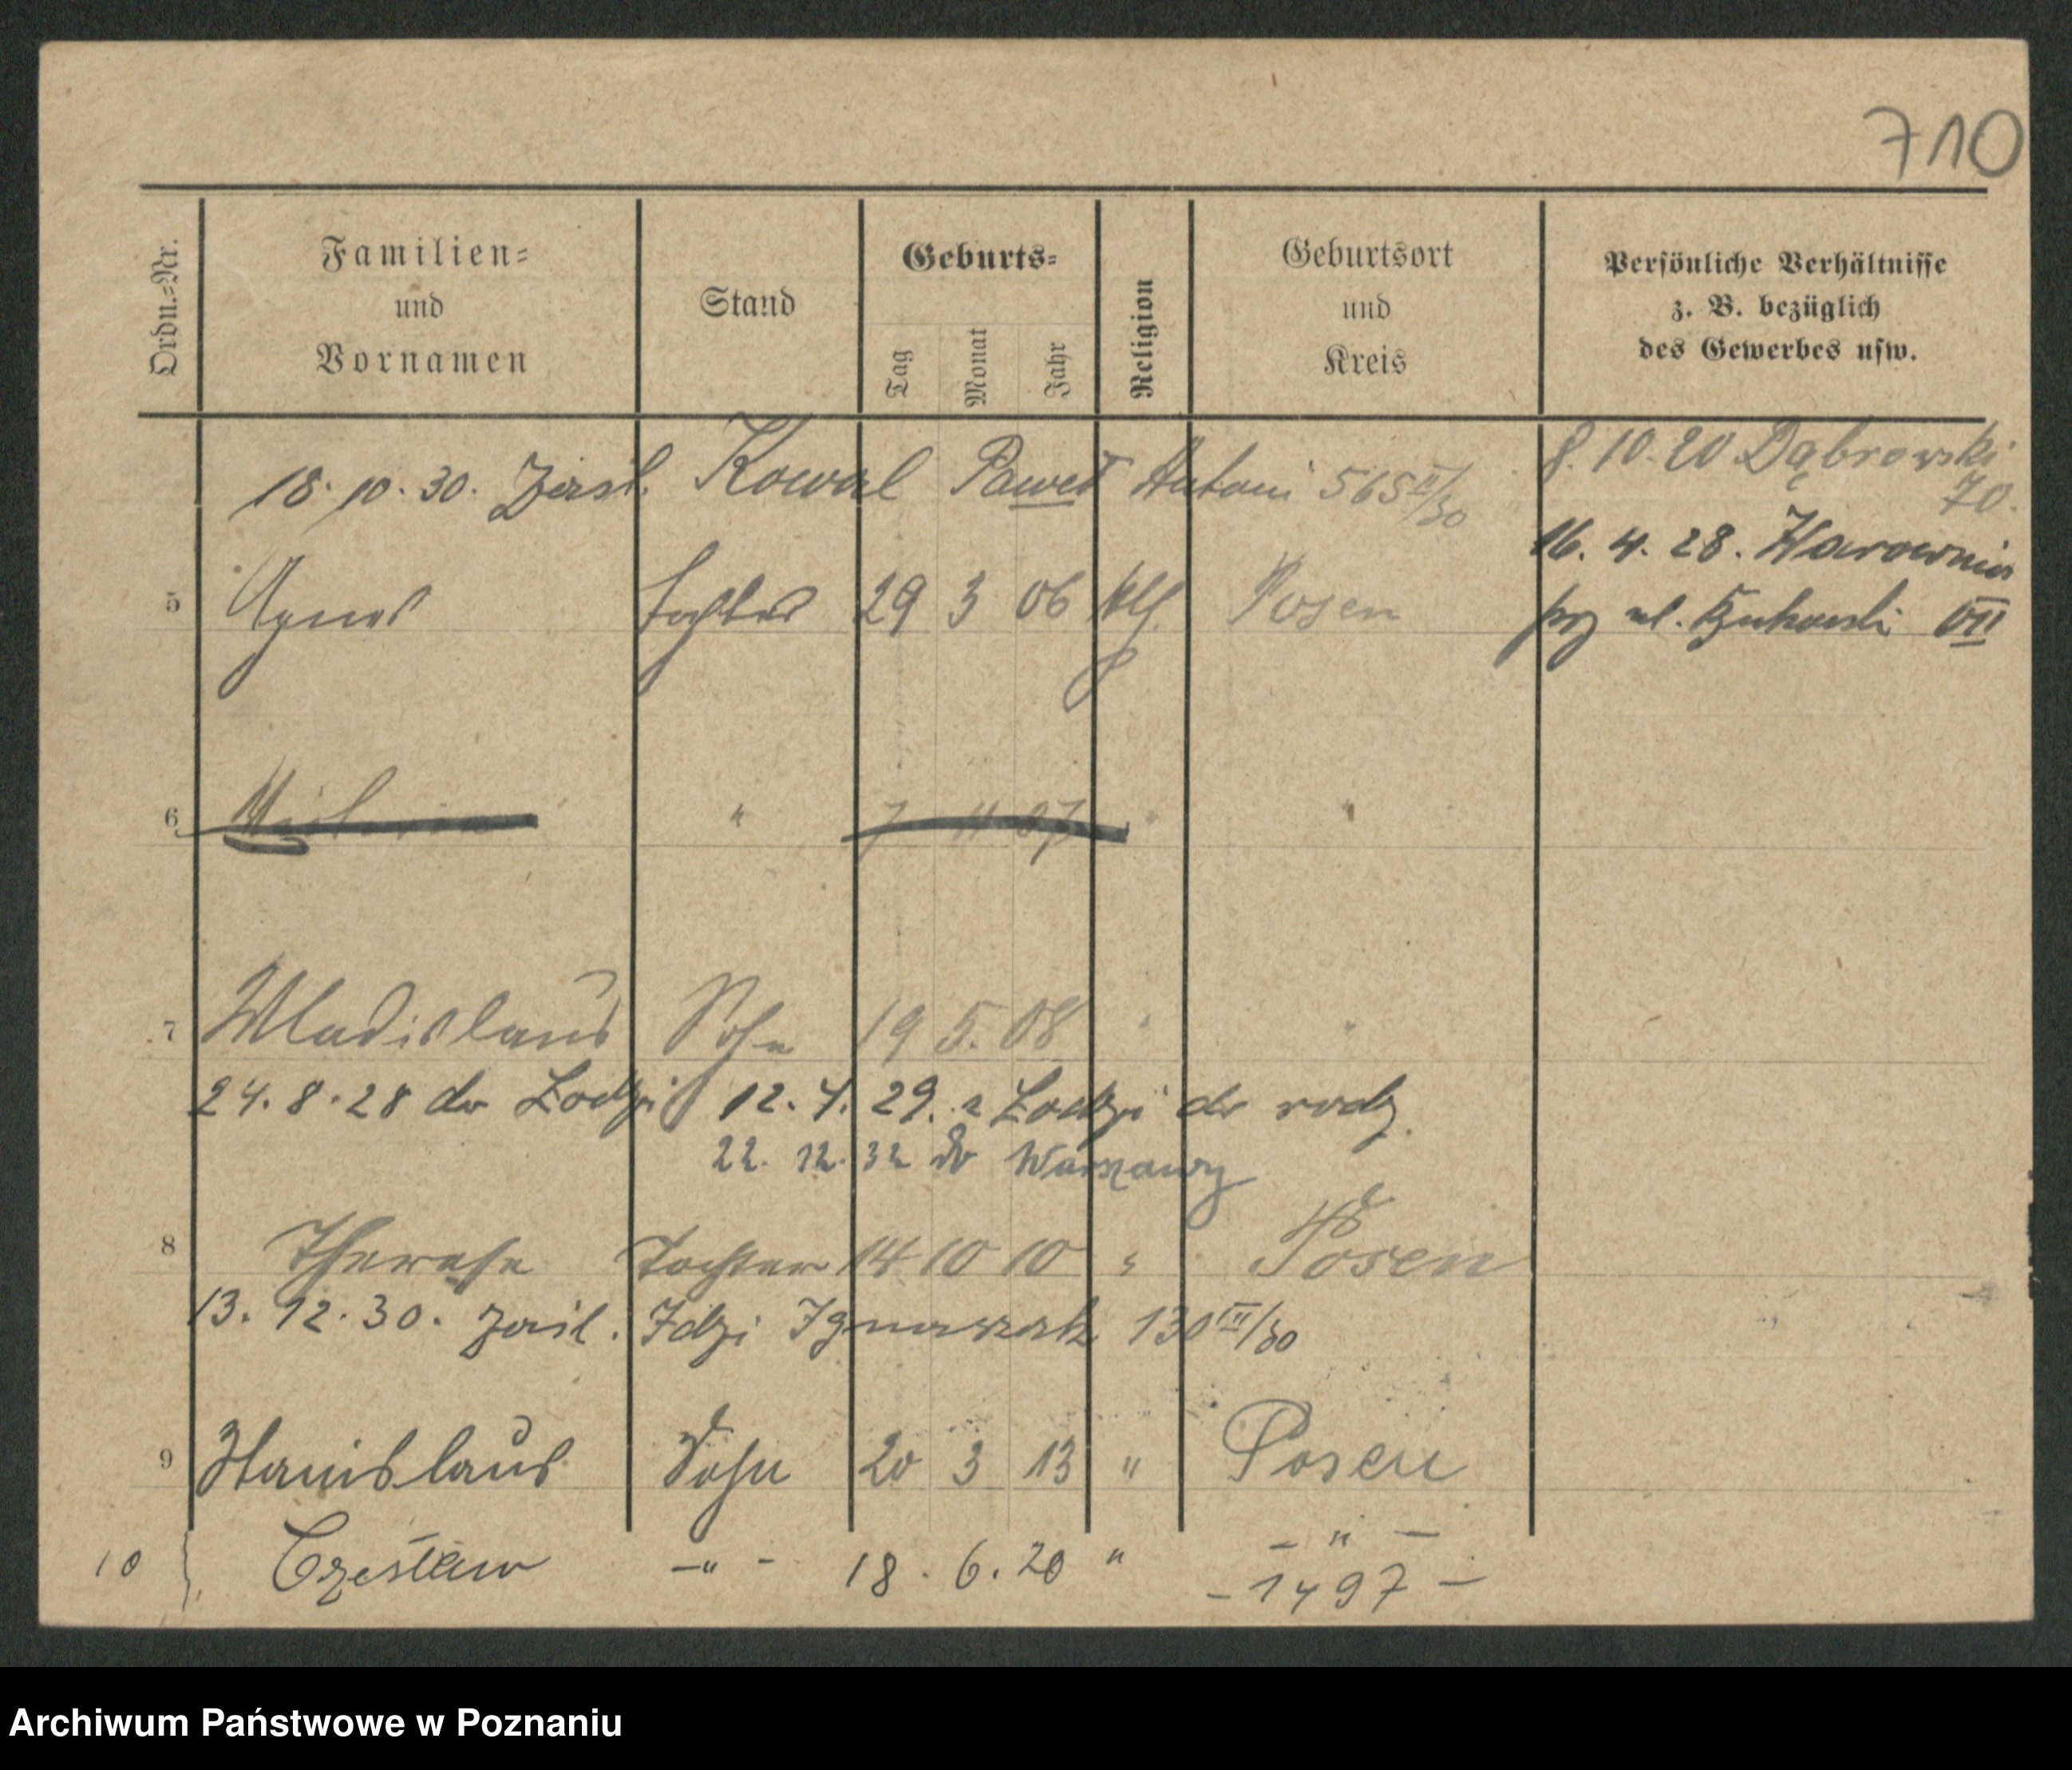 710
Ordn.-Nr.
Familien-
und
Vornamen
Stand
Geburts-
Tag Monat Jahr
Religion
Geburtsort
und
Kreis
Persönliche Verhältnisse
z. B. bezüglich
des Gewerbes usw.
8. 10. 20 Dąbrowski
70.
18. 10. 30. Kowal Paweł Antoni 565 II/30
16. 4. 28.
5 Agnes Tochter 29 3 06 kth. Posen
ul. VII
6 " 7 11 07 " "
7 Wladislaus Sohn 19 5. 08 " "
24. 8. 28 do Łodzi 12. 4. 29. z Łodzi do rodz.
22. 12. 32 do Warszawy
8 Therese Tochter 14 10 10 " Posen
13. 12. 30. Idzi Ignaszak 130 III/30
9 Stanislaus Sohn 20 3 13 " Posen
10 Czesław - " - 18. 6. 20 " - " -
- 1497 -
Archiwum Państwowe w Poznaniu